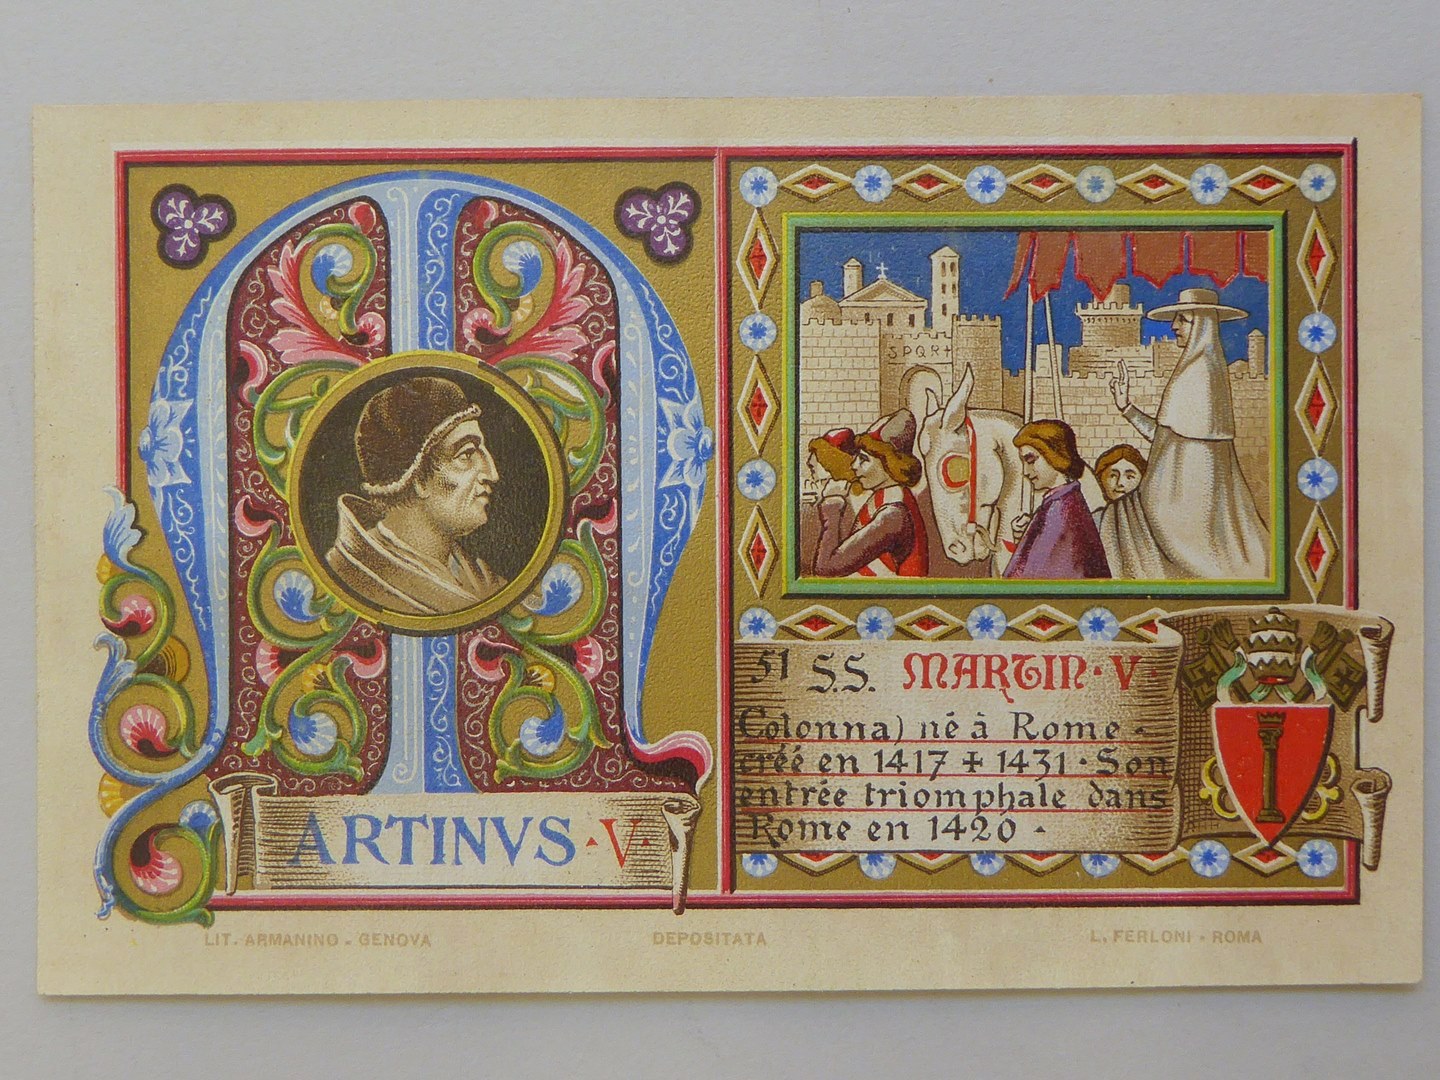 MARTINVS · V ·
SPQR+
51 S.S. MARTIN · V ·
Colonna) né à Rome -
créé en 1417 + 1431 · Son
entrée triomphale dans
Rome en 1420 ·
LIT. ARMANINO - GENOVA
DEPOSITATA
L. FERLONI - ROMA